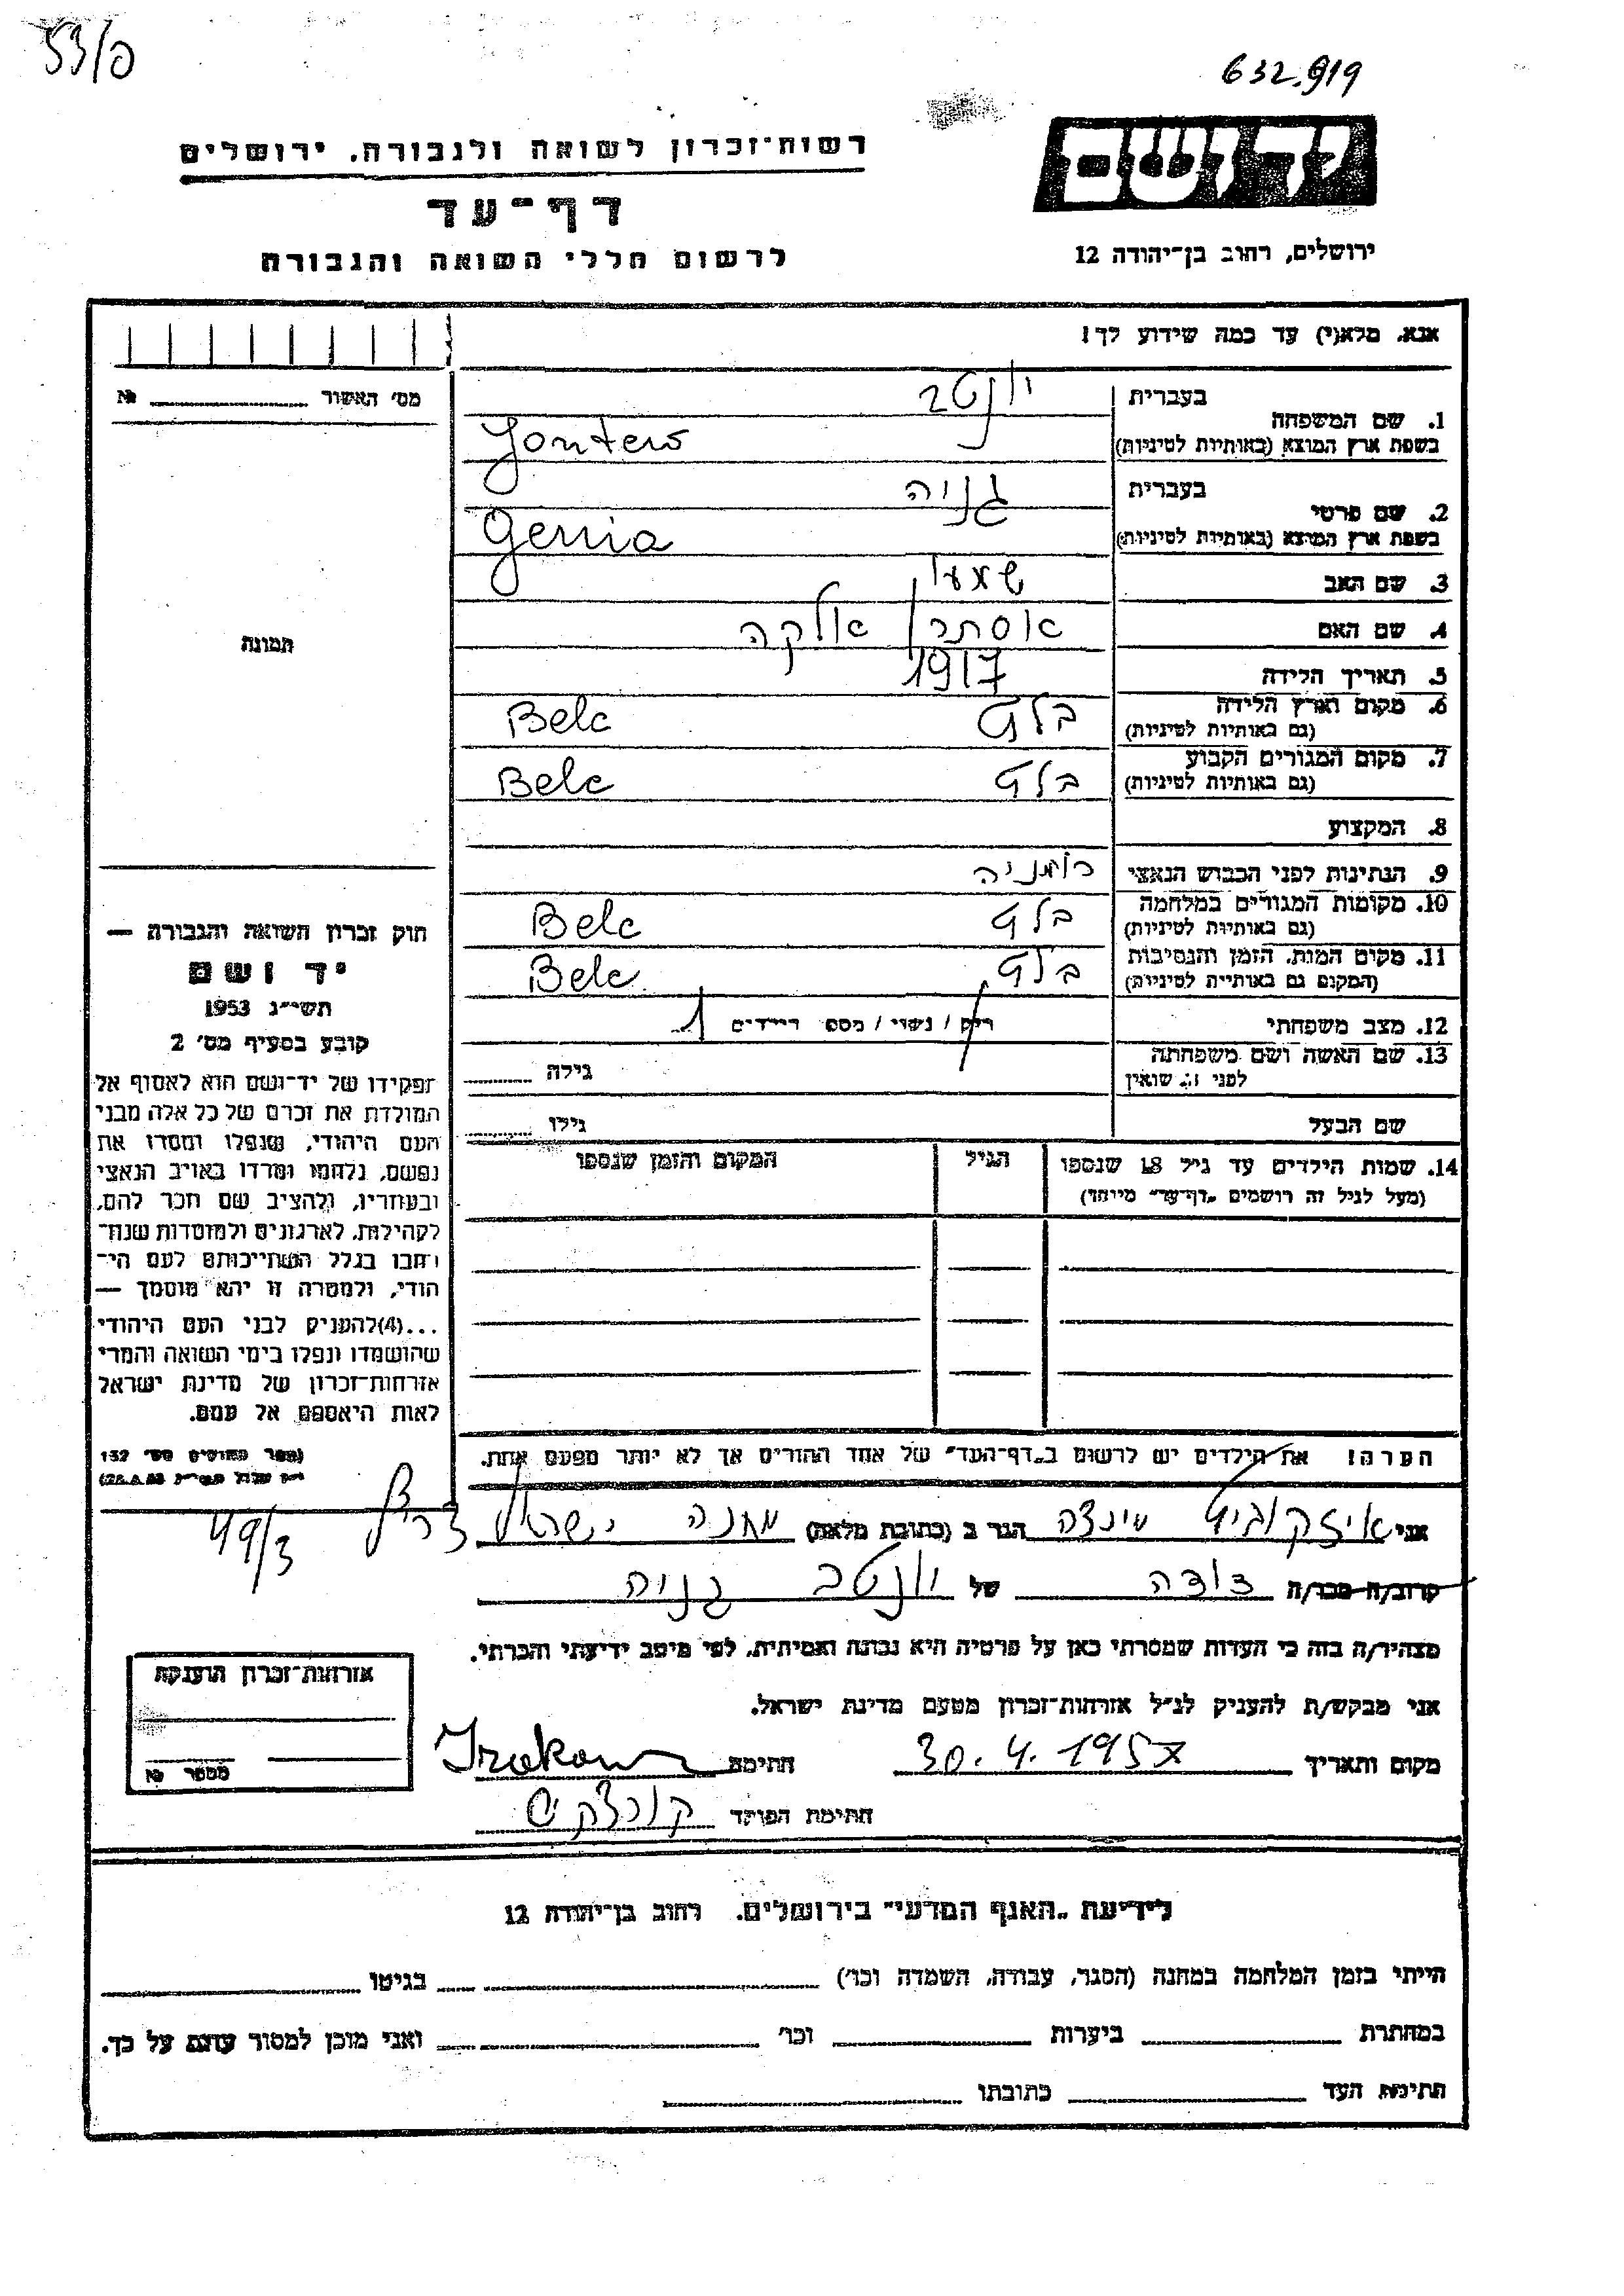 53/פ
632.919
רשות־זכרון לשואה ולגבורה. ירושלים
יד ושם
דף־עד
לרשום חללי השואה והגבורה
ירושלים, רחוב בן־יהודה 12
אנא, מלא(י) עד כמה שידוע לך!
מס׳ האשור №
1. שם המשפחה
בעברית יונטב
בשפת ארץ המוצא (באותיות לטיניות) Jontew
2. שם פרטי
בעברית גניה
בשפת ארץ המוצא (באותיות לטיניות) Genia
3. שם האב שמעון
4. שם האם אסתר אלקה
5. תאריך הלידה 1917
6. מקום וארץ הלידה
(גם באותיות לטיניות) בלץ Belc
7. מקום המגורים הקבוע
(גם באותיות לטיניות) בלץ Belc
8. המקצוע
9. הנתינות לפני הכבוש הנאצי רומניה
10. מקומות המגורים במלחמה
(גם באותיות לטיניות) בלץ Belc
11. מקום המות, הזמן והנסיבות
(המקום גם באותיות לטיניות) בלץ Belc
12. מצב משפחתי רוק / נשוי / מספ הילדים 1
13. שם האשה ושם משפחתה
לפני הנשואין גילה
שם הבעל גילו
14. שמות הילדים עד גיל 18 שנספו
(מעל לגיל זה רושמים „דף־עד״ מיוחד)
הגיל
המקום והזמן שנספו
תמונה
חוק זכרון השואה והגבורה —
יד ושם
תשי״ג 1953
קובע בסעיף מס׳ 2
תפקידו של יד־ושם הוא לאסוף אל
המולדת את זכרם של כל אלה מבני
העם היהודי, שנפלו ומסרו את
נפשם, נלחמו ומרדו באויב הנאצי
ובעוזריו, ולהציב שם וזכר להם,
לקהילות, לארגונים ולמוסדות שנח־
רבו בגלל השתייכותם לעם הי־
הודי, ולמטרה זו יהא מוסמך —
...(4)להעניק לבני העם היהודי
שהושמדו ונפלו בימי השואה והמרי
אזרחות־זכרון של מדינת ישראל
לאות היאספם אל עמם.
(ספר החוקים מס׳ 132
הערה! את הילדים יש לרשום ב„דף־העד״ של אחד ההורים אך לא יותר מפעם אחת.
אני איזקוביץ מינצה הגר ב (כתובת מלאה) מחנה ישראל צריף 49/3
קרוב/ה מכר/ה דודה של יונטב גניה
מצהיר/ה בזה כי העדות שמסרתי כאן על פרטיה היא נכונה ואמיתית, לפי מיטב ידיעתי והכרתי.
אני מבקש/ת להעניק לנ״ל אזרחות־זכרון מטעם מדינת ישראל.
מקום ותאריך 30.4.1957 חתימה
חתימת הפוקד
אזרחות־זכרון הוענקה
מספר №
לידיעת „האגף המדעי״ בירושלים. רחוב בן־יהודה 12
הייתי בזמן המלחמה במחנה (הסגר, עבודה, השמדה וכו׳) בגיטו
במחתרת ביערות וכו׳ ואני מוכן למסור עדות על כך.
חתימת העד כתובתו